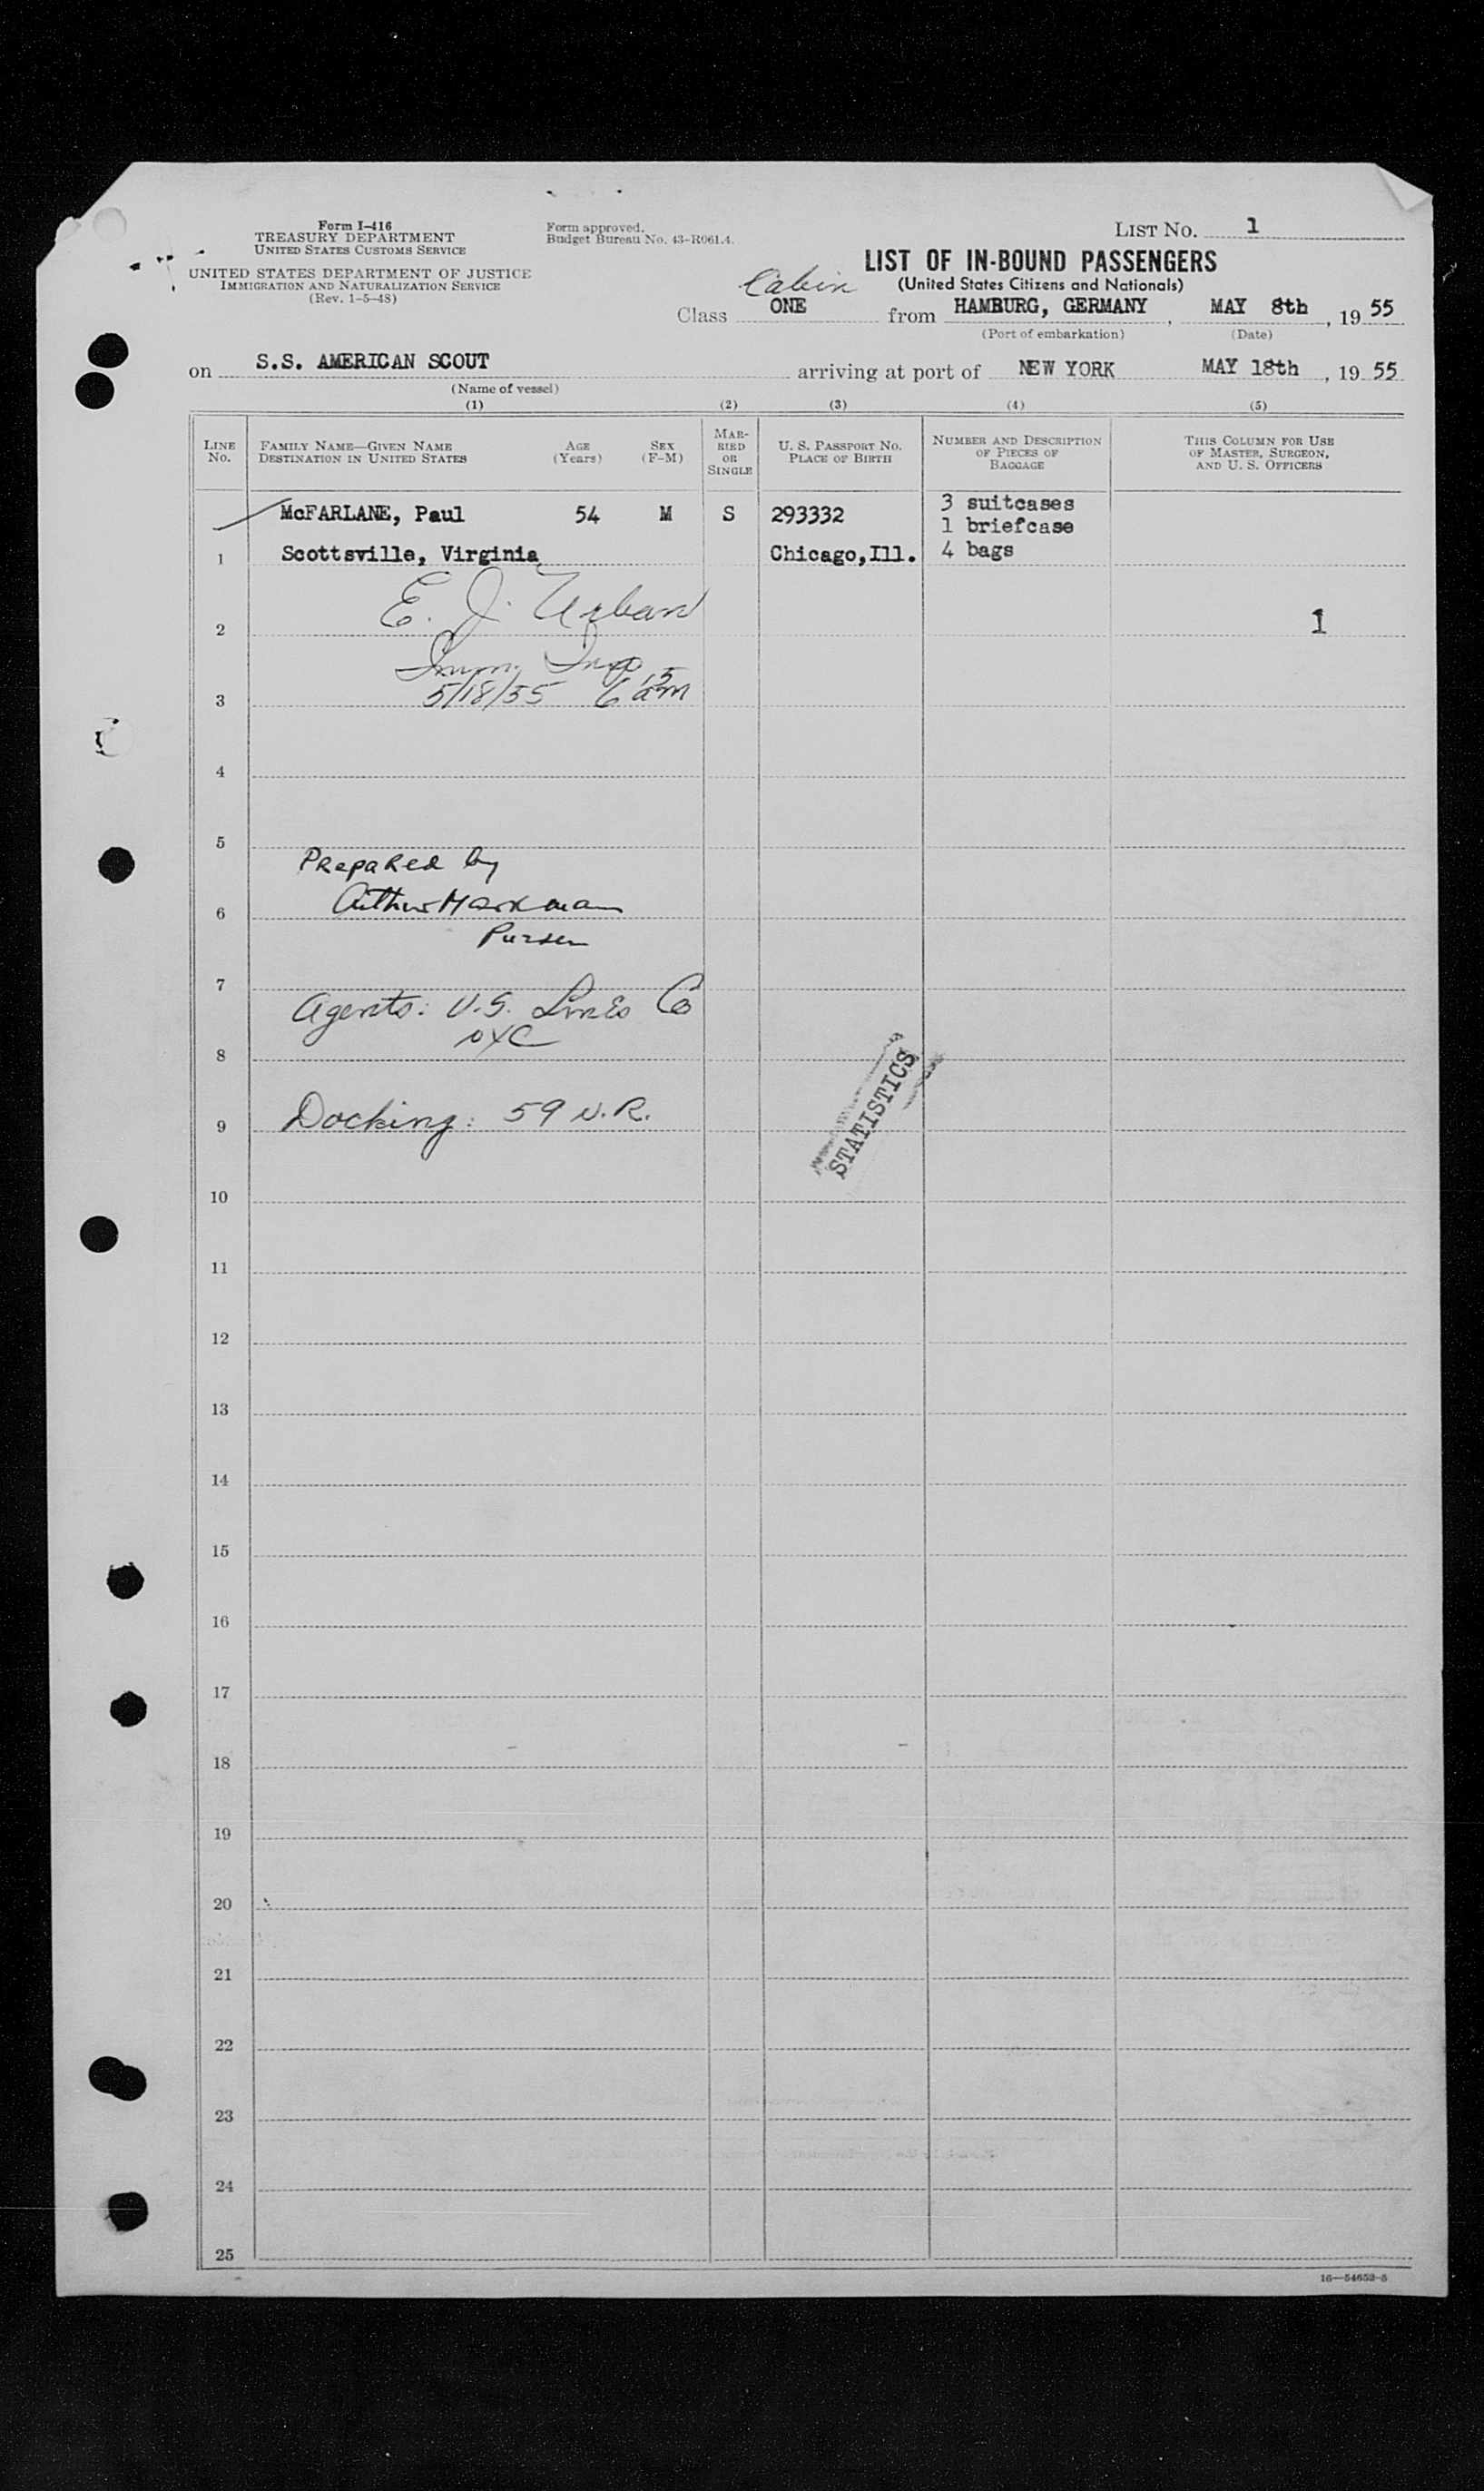 Form I-416
TREASURY DEPARTMENT
UNITED STATES CUSTOMS SERVICE
UNITED STATES DEPARTMENT OF JUSTICE
IMMIGRATION AND NATURALIZATION SERVICE
(Rev. 1-5-48)
Form approved.
Budget Bureau No. 43-R061.4.
LIST No. 1
LIST OF IN-BOUND PASSENGERS
(United States Citizens and Nationals)
Cabin
Class ONE from HAMBURG, GERMANY, MAY 8th, 19 55
(Port of embarkation) (Date)
on S.S. AMERICAN SCOUT arriving at port of NEW YORK MAY 18th, 19 55
(Name of vessel)
(1) (2) (3) (4) (5)
LINE No.
FAMILY NAME—GIVEN NAME
DESTINATION IN UNITED STATES
AGE (Years)
SEX (F-M)
MARRIED OR SINGLE
U. S. PASSPORT No.
PLACE OF BIRTH
NUMBER AND DESCRIPTION
OF PIECES OF
BAGGAGE
THIS COLUMN FOR USE
OF MASTER, SURGEON,
AND U. S. OFFICERS
McFARLANE, Paul 54 M S 293332 3 suitcases
1 briefcase
1 Scottsville, Virginia Chicago,Ill. 4 bags
E. J. Urban
2 1
Imm. Insp
3 5/18/55 6 15 am
4
5
Prepared by
6 Arthur Markman
Purser
7
Agents: U.S. Lines Co
NYC
8
STATISTICS
9 Docking: 59 N.R.
10
11
12
13
14
15
16
17
18
19
20
21
22
23
24
25
16—54652-5